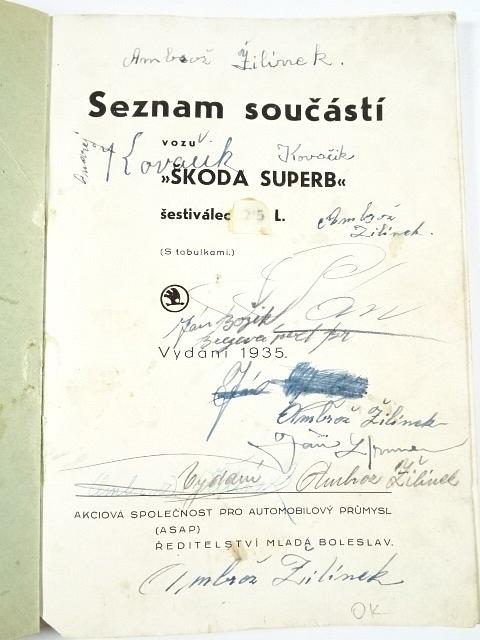 Ambrož Žilínek.
Seznam součástí
vozu
Ondrej Kovačik
Kovačik
»ŠKODA SUPERB«
šestiválec 2·5 L.
Ambrož
Žilínek.
(S tabulkami.)
Pan
Ján Božik
Vydání 1935.
Ján
Ambrož Žilínek
Ján
Vydaní Ambrož Žilínek
AKCIOVÁ SPOLEČNOST PRO AUTOMOBILOVÝ PRŮMYSL
(ASAP)
ŘEDITELSTVÍ MLADÁ BOLESLAV.
Ambrož Žilínek
OK